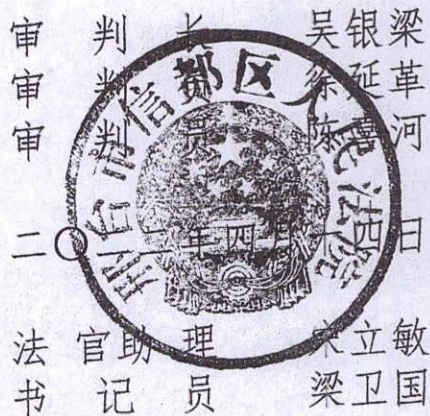 审 判 长 吴银梁
审 判 员 徐延革
审 判 员 陈 河
二〇二二年四月 四日
法官助理 宋立敏
书 记 员 梁卫国
邢台市信都区人民法院